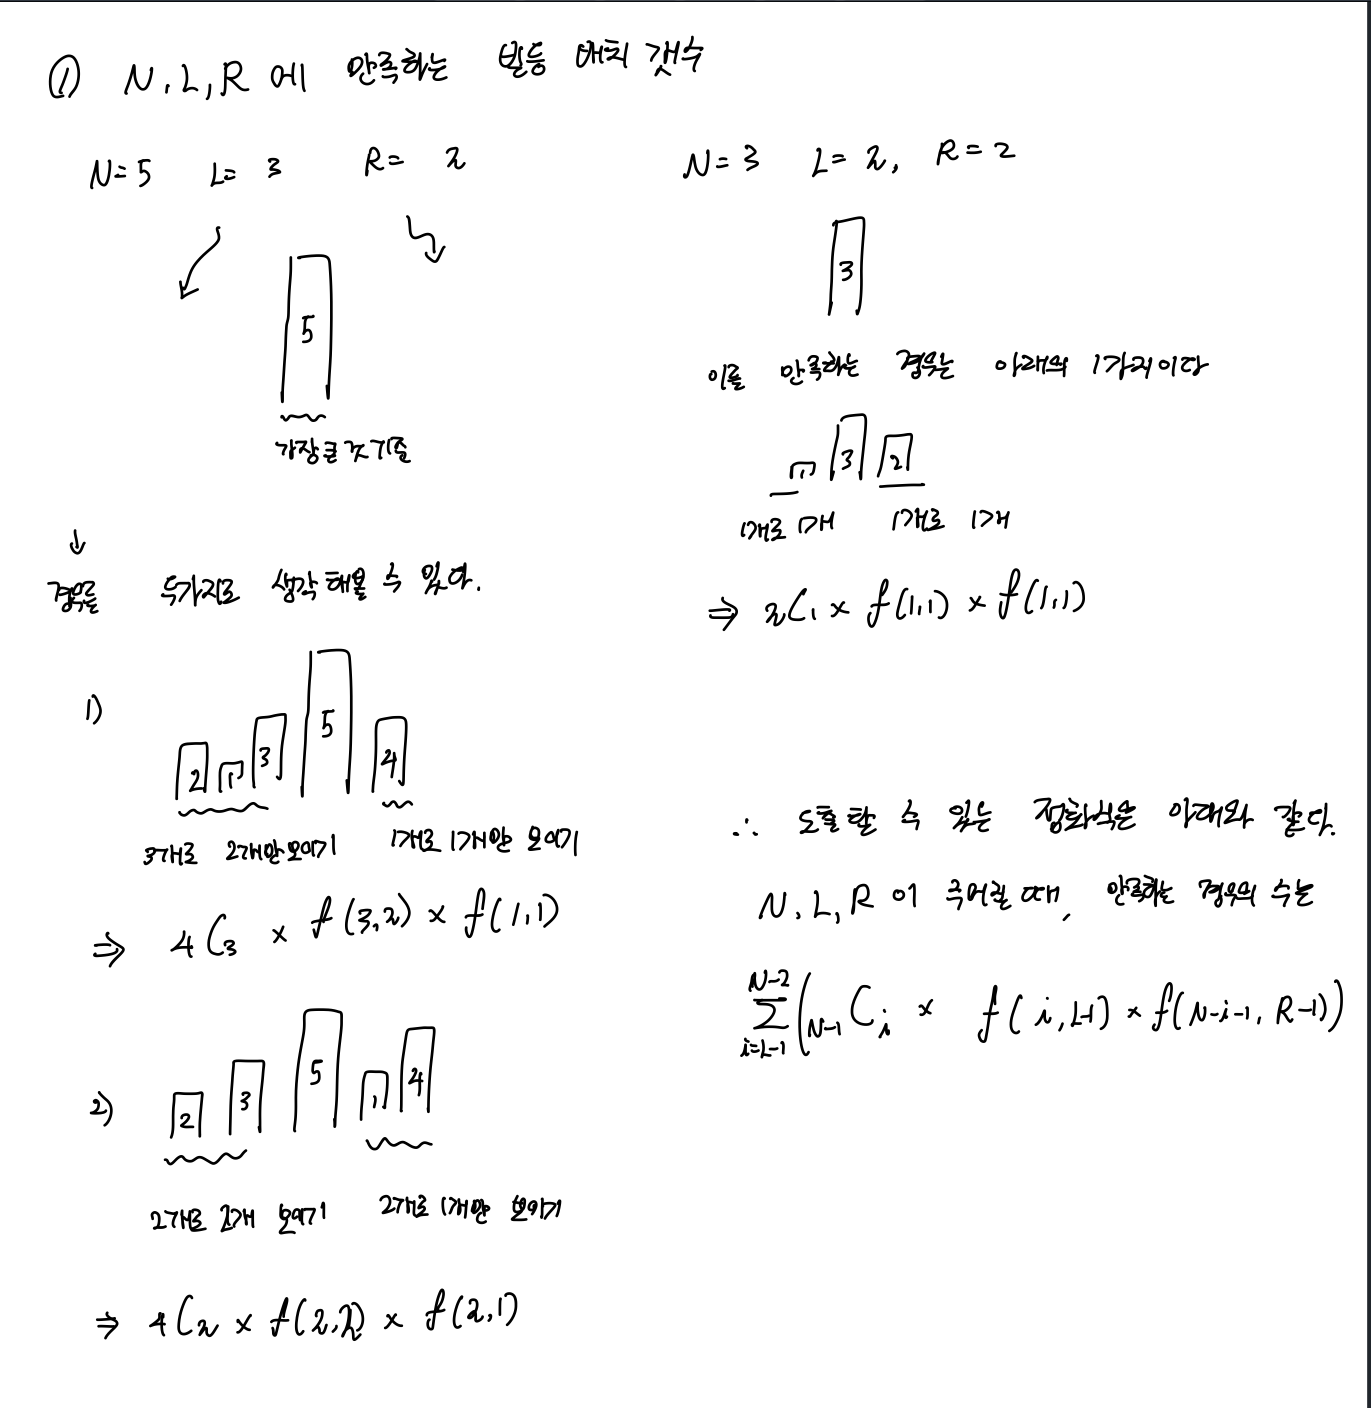 ① N, L, R 에 만족하는 빌딩 배치 갯수
N=5 L= 3 R= 2
5
가장 큰 것 기준
↓
경우를 두가지로 생각해볼 수 있다.
1)
2 1 3 5 4
3개로 2개만 보이기 1개로 1개만 보이기
⇒ 4C3 × f(3,2) × f(1,1)
2)
2 3 5 1 4
2개로 2개 보이기 2개로 1개만 보이기
⇒ 4C2 × f(2,2) × f(2,1)
N=3 L=2, R=2
3
이를 만족하는 경우는 아래의 1가지이다
1 3 2
1개로 1개 1개로 1개
⇒ 2C1 × f(1,1) × f(1,1)
∴ 도출할 수 있는 점화식은 아래와 같다.
N, L, R 이 주어질 때, 만족하는 경우의 수는
N-2
Σ (N-1Ci × f(i, L-1) × f(N-i-1, R-1))
i=L-1